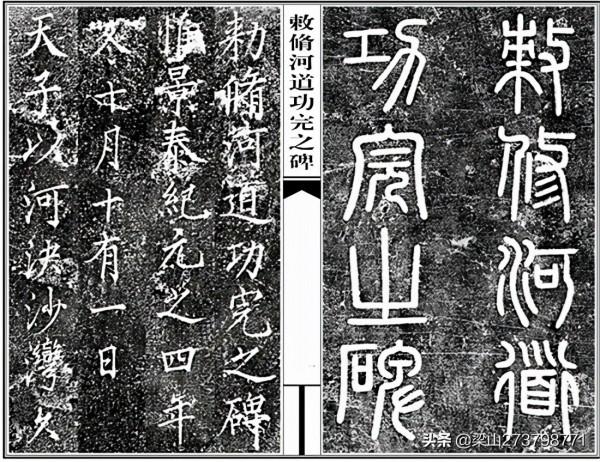 敕修河道
功完之碑
敕脩河道功完之碑
勑脩河道功完之碑
惟景泰紀元之四年
冬十月十有一日
天子以河決沙灣久
头条 @梁山273798771